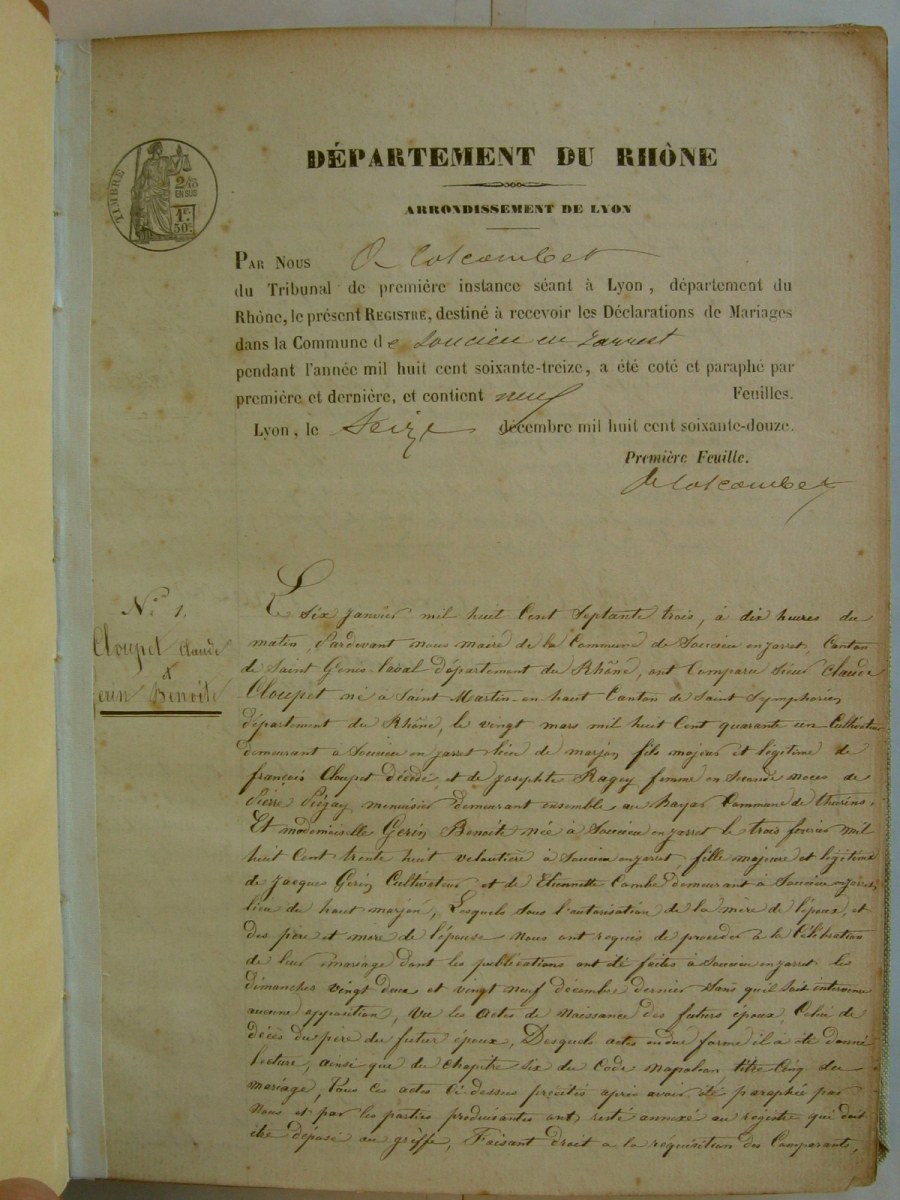 DÉPARTEMENT DU RHÔNE
TIMBRE
2/10
EN SUS
1F.
50c.
ARRONDISSEMENT DE LYON
PAR NOUS
du Tribunal de première instance séant à Lyon, département du
Rhône, le présent REGISTRE, destiné à recevoir les Déclarations de Mariages
dans la Commune de Soucieu en Jarrest
pendant l'année mil huit cent soixante-treize, a été coté et paraphé par
première et dernière, et contient neuf Feuilles.
Lyon, le Seize décembre mil huit cent soixante-douze.
Première Feuille.
N° 1.
Cloupet Claude
&
Benoîte
Le Six Janvier mil huit Cent Septante trois, à dix heures du
matin, Pardevant nous maire de la Commune de Soucieu enjarret, Canton
de Saint Genis-Laval département du Rhône, ont Comparu Sieur Claude
Cloupet né à Saint Martin-en-haut Canton de Saint Symphorien,
département du Rhône, le vingt mars mil huit Cent quarante un Cultivateur
demeurant à Soucieu en jarret lieu de marjon, fils majeur et légitime de
françois Cloupet décédé, et de Josephte Ragey femme en Seconde noces de
Pierre Piégay menuisier demeurant ensemble au Commune de thurins,
Et mademoiselle Gerin Benoîte née à Soucieu enjarret le trois fevrier mil
huit Cent trente huit veloutière à Soucieu enjarret, fille majeure et légitime
de Jacques Gerin Cultivateur et de Etiennette Combe demeurant à Soucieu enjarret,
lieu du haut marjon, Lesquels Sous l'autorisation de la mère de l'époux, et
des père et mere de l'épouse Nous ont requis de procéder à la Célébration
de leur mariage dont les publications ont été faites à Soucieu enjarret les
dimanches vingt deux et vingt neuf décembre dernier Sans qu'il Soit intervenu
aucune opposition, Vu les actes de Naissance des futurs époux, Celui de
décès du père du futur époux, Desquels actes en due forme il à été donné
lecture, ainsi que du Chapitre Six du Code napoléon titre Cinq du
mariage, Tous ces actes Ci dessus précités après avoir été paraphés par
Nous et par les parties produisantes ont resté annexé au registre qui doit
être déposé au greffe, Faisant droit a la réquisition des Comparants,